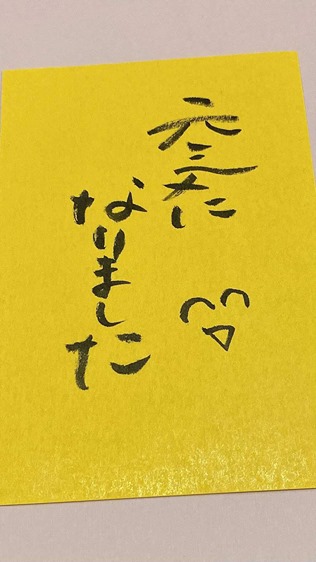 元気に
なりました